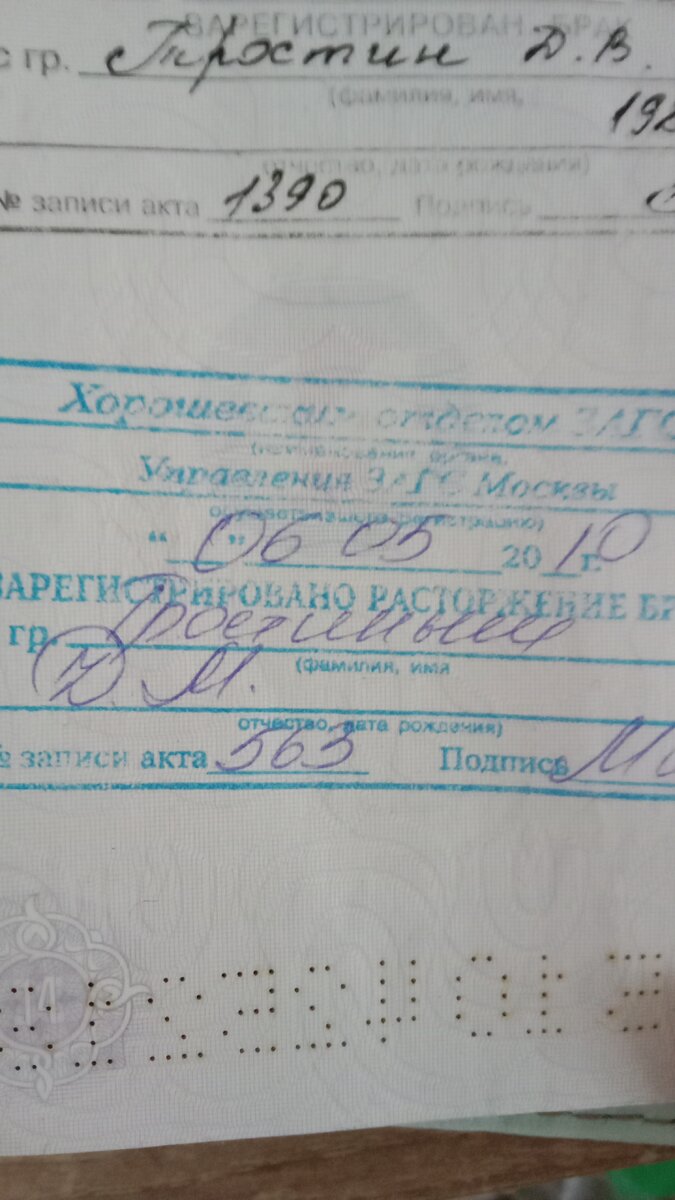 ЗАРЕГИСТРИРОВАН БРАК
с гр. Тростин Д.В.
(фамилия, имя,
198
отчество, дата рождения)
№ записи акта 1390 Подпись
Хорошевским отделом ЗАГС
(наименование органа,
Управления ЗАГС Москвы
осуществившего регистрацию)
" " 06 05 2010 г.
ЗАРЕГИСТРИРОВАНО РАСТОРЖЕНИЕ БР
гр. Тростиным
Д. М. (фамилия, имя
отчество, дата рождения)
№ записи акта 563 Подпись
14